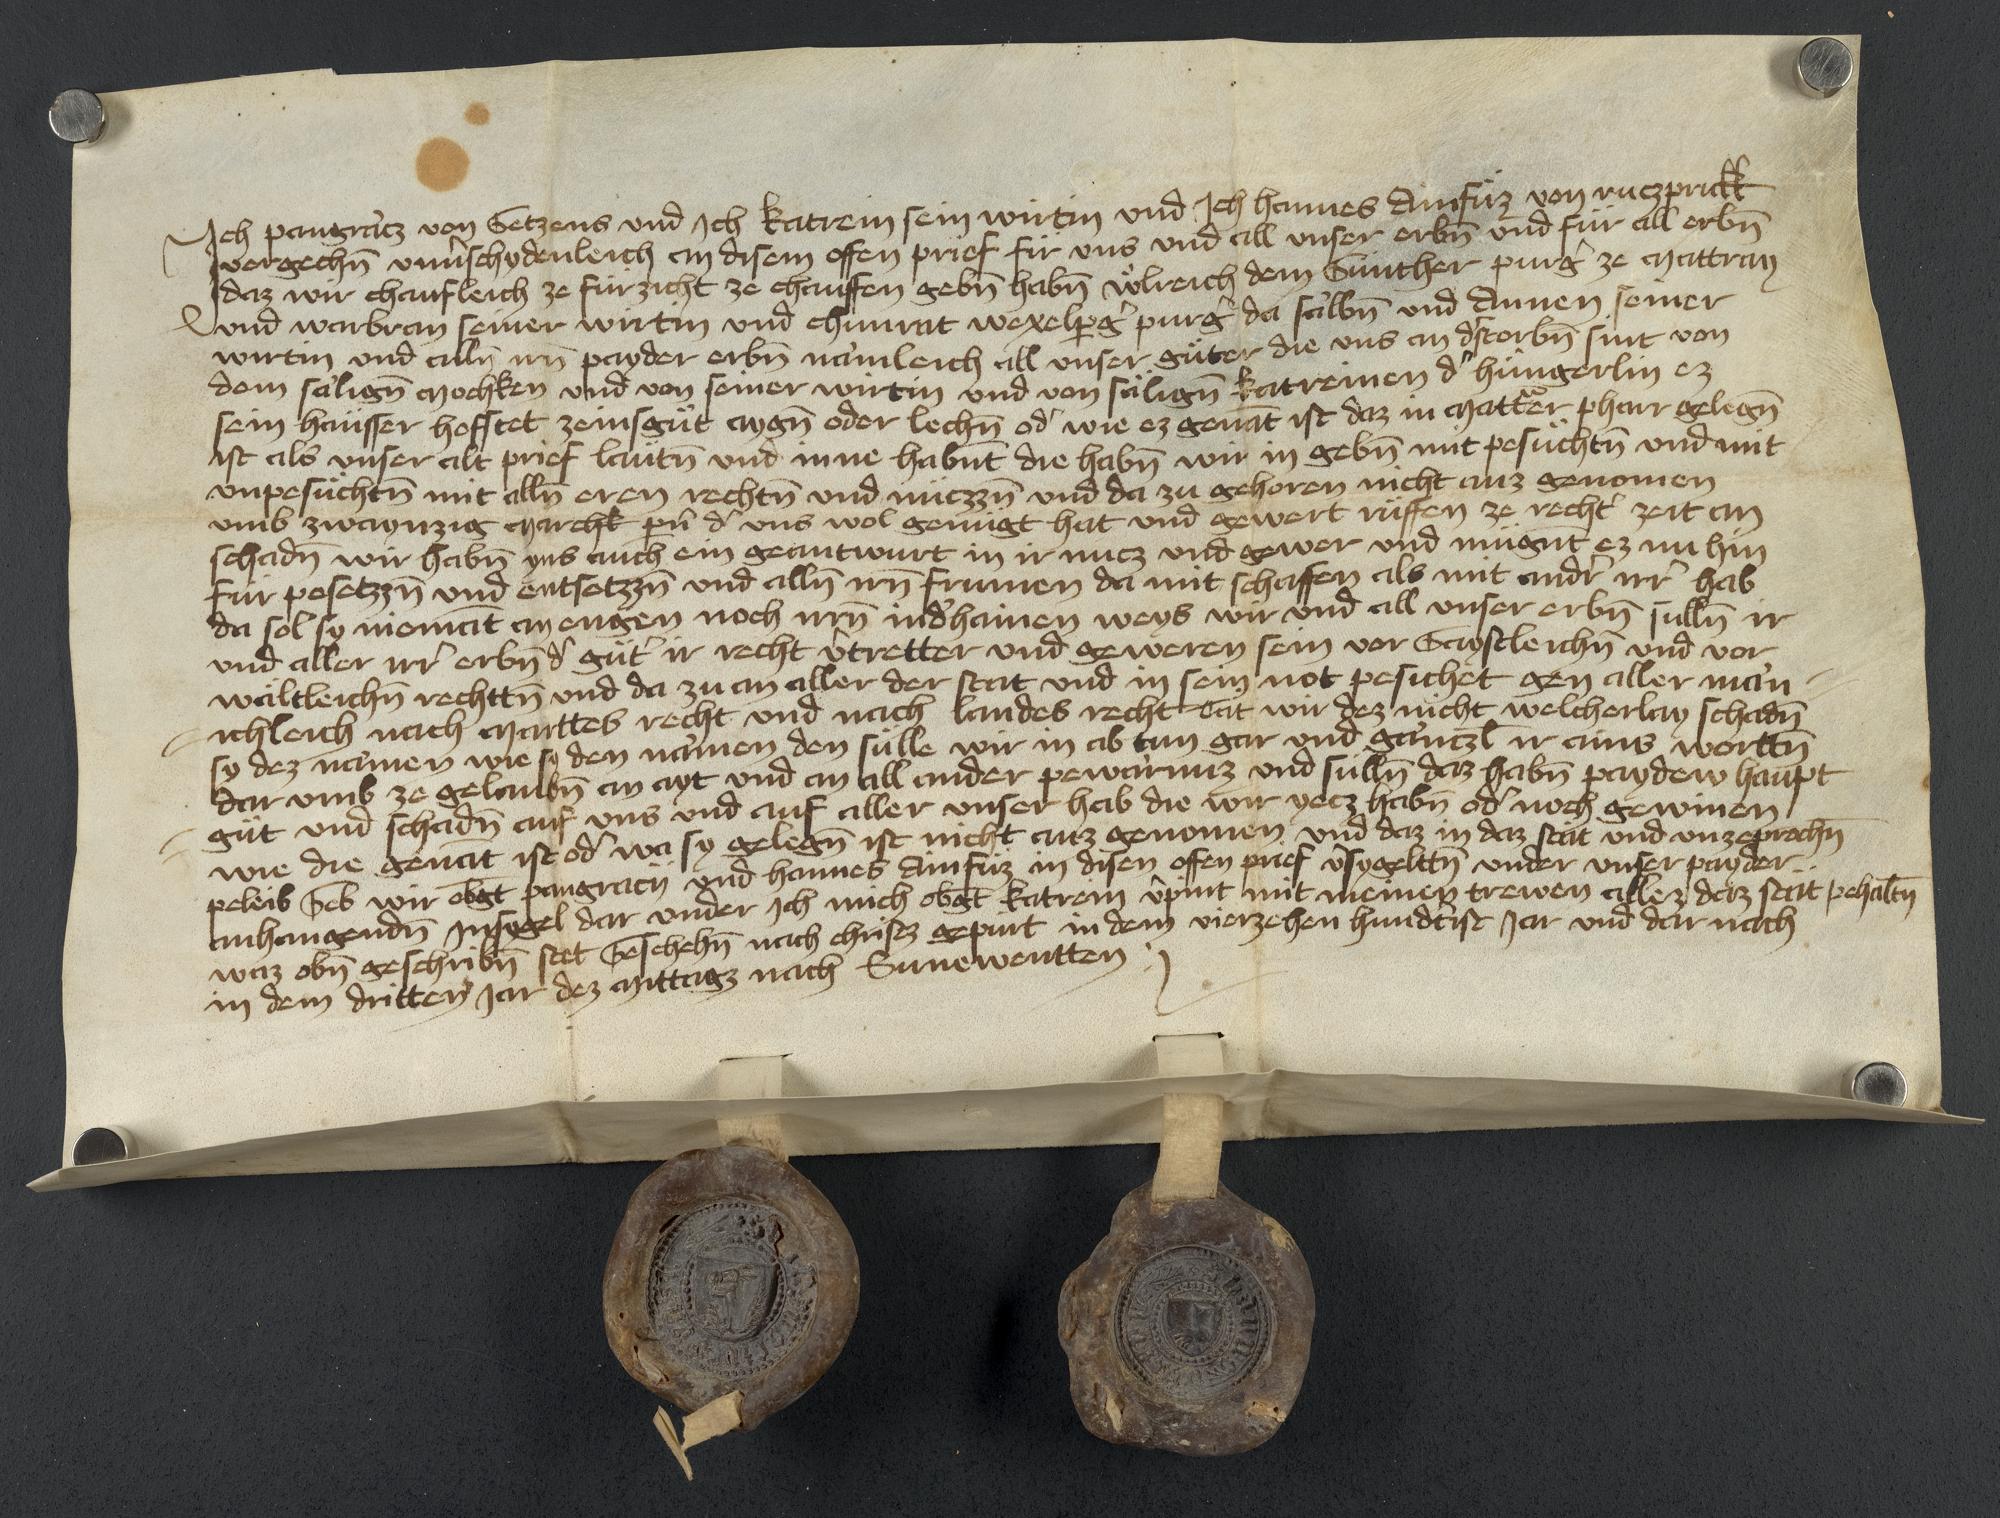 Ich pangräcz von Setzens und Ich Katrein sein wirtin und Ich hannes Ainfüz von ruczprukk
vergechn̄ unv̄schydenleich an disem offen prief für uns und all unser erbn̄ und für all erbn̄
daz wir chaufleich ze fürzicht ze chauffen gebn̄ habn̄ Ůlreich dem Günther purg̉ ze Mattran
und warbran seiner wirtin und chunrat wexelpg̉ purg̉ da sälbn̄ und Annen seiner
wirtin und alln̄ irn̄ payder erbn̄ nämleich all unser güter die uns an d̉storbn̄ sint von
dem sälign̄ Mochken und von seiner wirtin und von sälign̄ Katreinen d̉ hüngerlin ez
sein häusser hofstet zeinsgüt aygn̄ oder lechn̄ od̉ wie ez genāt ist daz in Mattrer pharr gelegn̄
ist als unser alt prief lautn̄ und inne habnt die habn̄ wir in gebn̄ mit pesüchtn̄ und mit
unpesüchtn̄ mit alln̄ eren rechtn̄ und nüczzn̄ und da zu gehoren nicht auz genomen
umb zwaynzig Marchk pn̄ d̉ uns wol genügt hat und gewert rüffen ze recht̉ zeit an
schadn̄ wir habn̄ yns auch ein geantwurt in ir nucz und gewer und mügnt ez nu hin
für pesetzzn̄ und entsetzzn̄ und alln̄ irn̄ frumen da mit schaffen als mit andr̉ irr̉ hab
da sol sy niemāt an engen noch irrn̄ in d̉hainen weys wir und all unser erbn̄ sulln̄ ir
und aller irr̉ erbn̄ d̉ güt̉ ir recht v̉tretter und geweren sein vor Gaystleichn̄ und vor
wältleichn̄ rechttn̄ und da zu an aller der stat und in sein not peschiet gen aller män
ichleich nach Marttes recht und nach landes recht Tät wir dez nicht welcherlay schadn̄
sy dez nämen wie sy den nämen den sülle wir in ab tun gar und gänczl̄ ir ains worttn̄
dar umb ze gelaubn̄ an ayt und an all ander pewärnuz und sülln̄ daz habn̄ paydew haupt
güt und schadn̄ auf uns und auf aller unser hab die wir yecz habn̄ od̉ noch gewinen
wie die genāt ist od̉ wa sy gelegn̄ ist nicht auz genomen und daz in daz stät und unzeprochn̄
peleib Geb wir obgt̄ pangracz und hannes Ainfüz in disen offen prief v̉sygelttn̄ under unser payder
anhangendn̄ Insygel dar under Ich mich obgt̄ Katrein v̉pint mit meinen trewen allez daz stät pehaltn̄
waz obn̄ geschribn̄ stet Geschehn̄ nach christz gepurt in dem vierzehen hundtist Jar und dar nach
in dem dritten Jar dez Mittagz nach Sunewentten